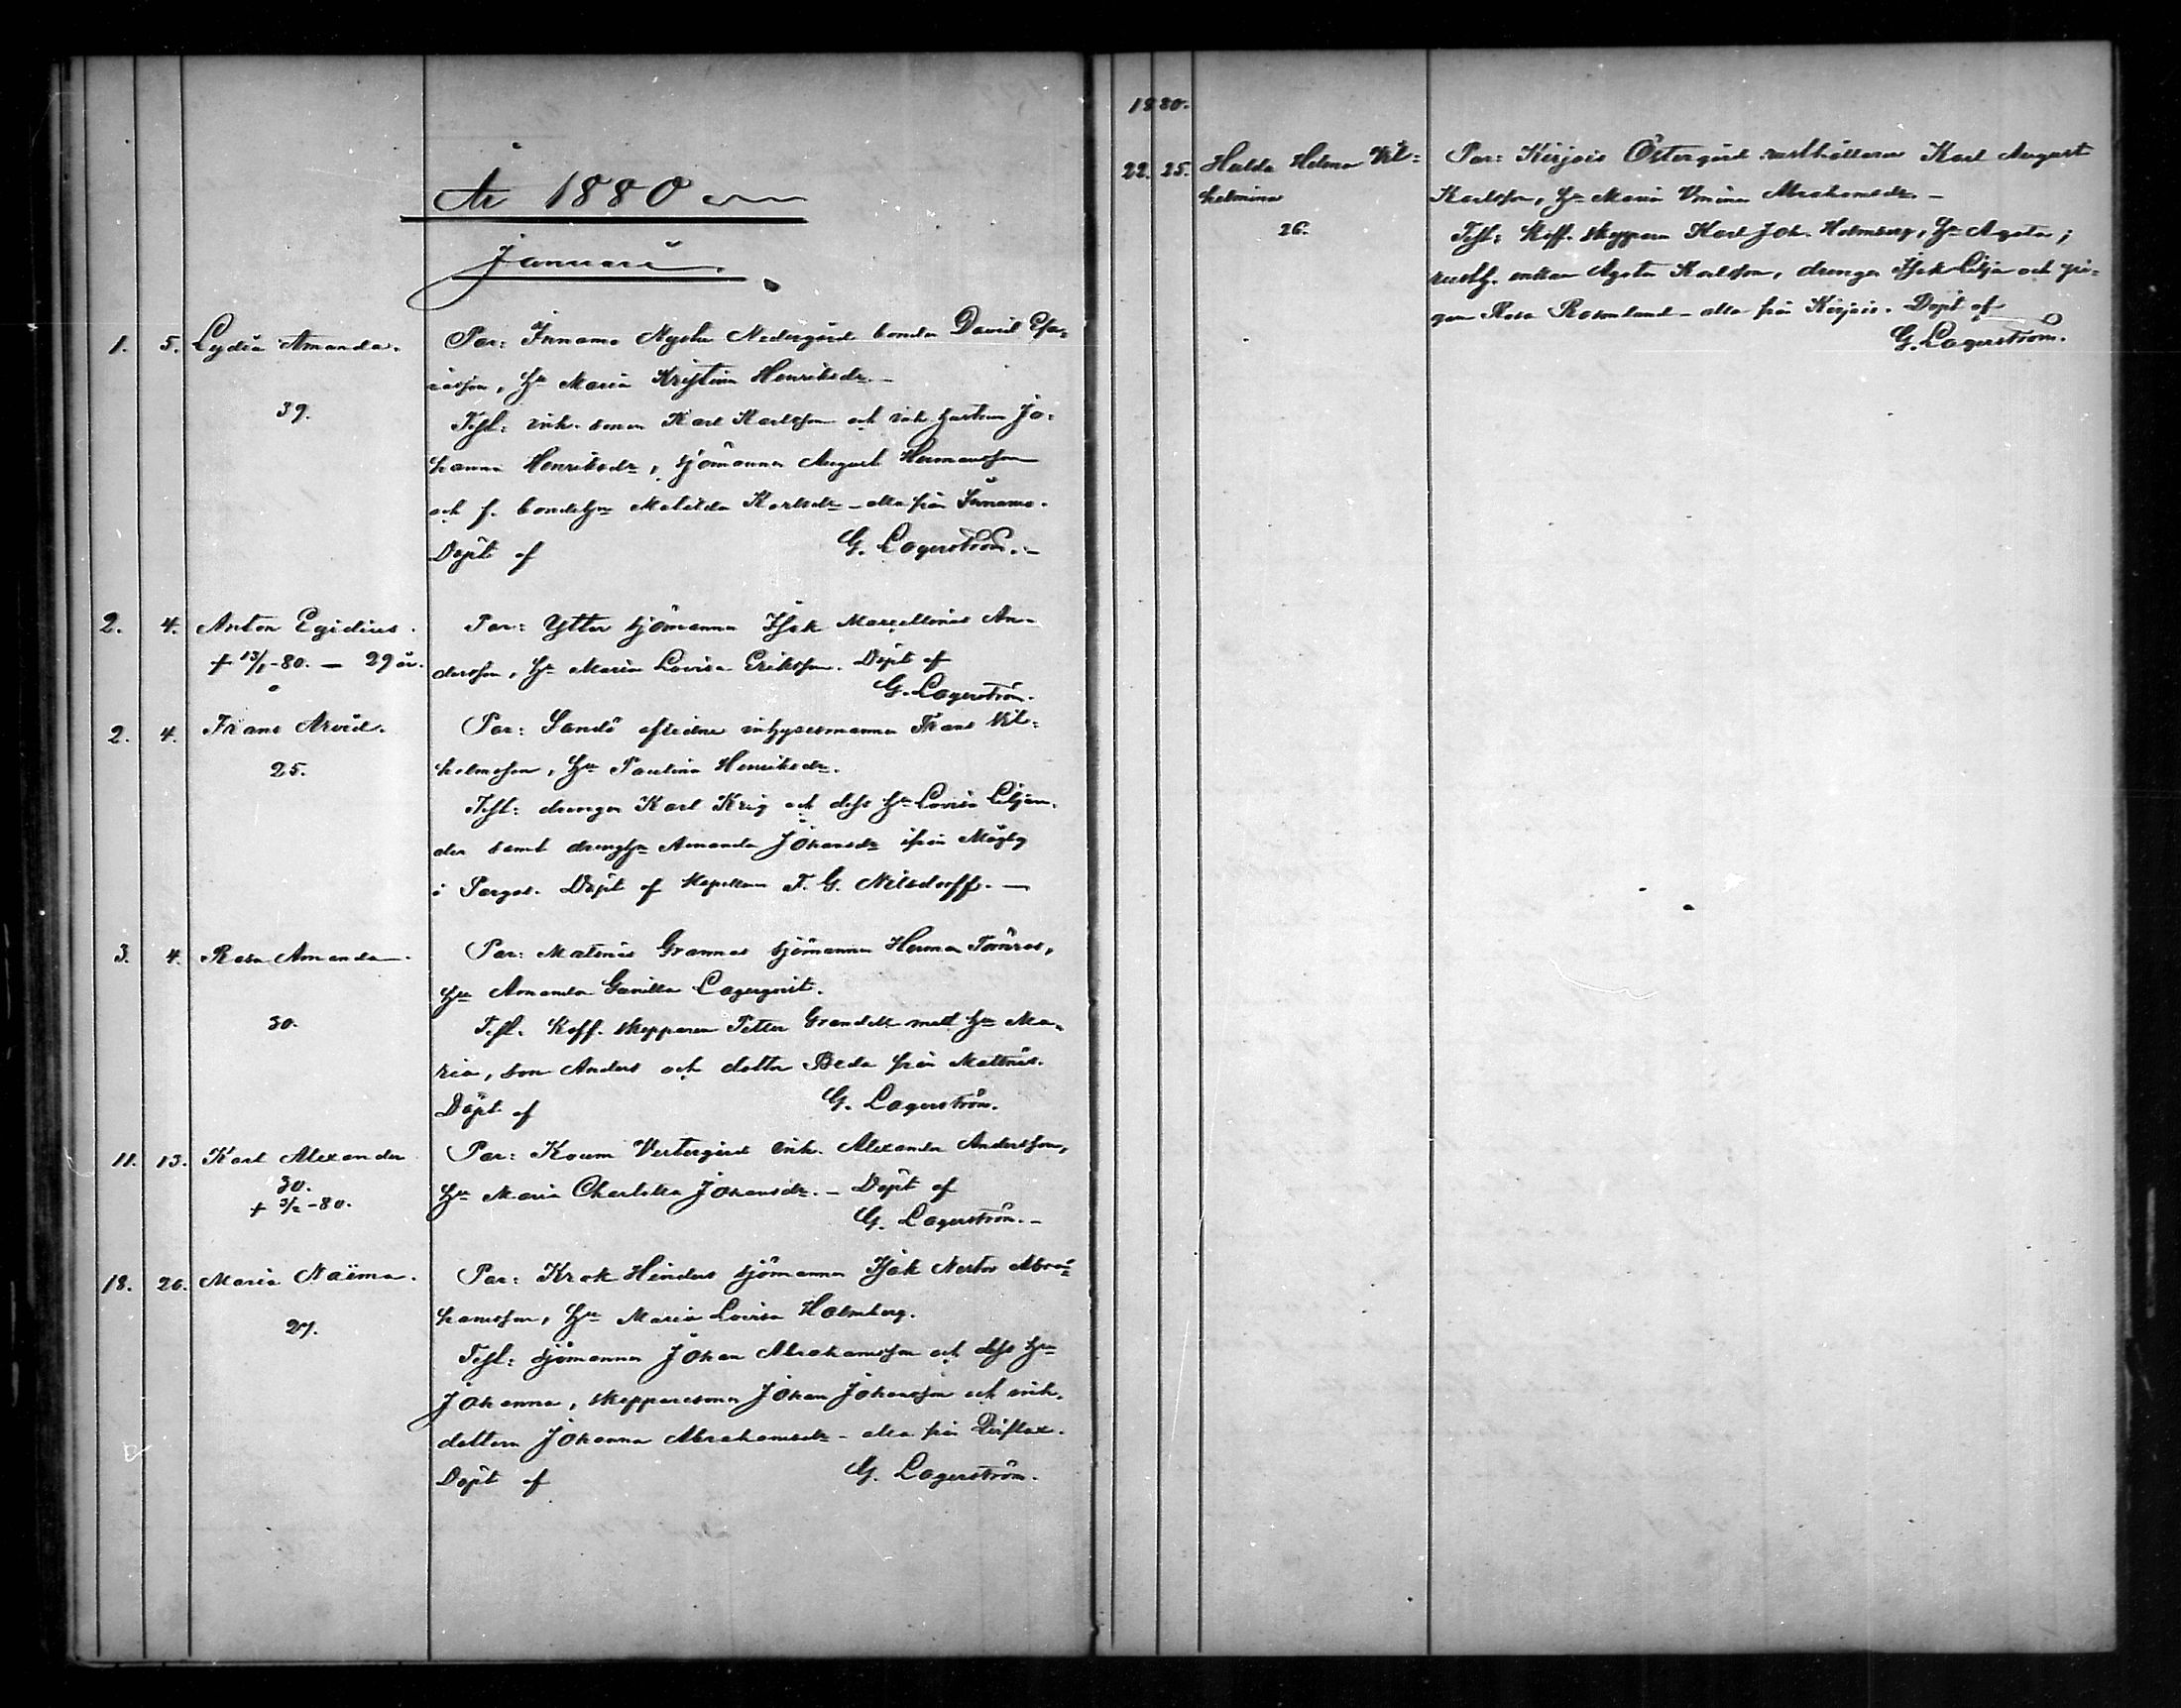 År 1880
Januari.
1. 5. Lydia Amanda. Par: Innamo Nystu Nedergård bonden David Esa-
iasson, Hu Maria Kristina Henriksdr. –
39.
Test: inh. sonen Karl Karlsson och inh. hustrun Jo-
hanna Henriksdr, sjömannen August Hermansson
och f. bondehu Matilda Karlsdr – alla från Innamo.
Döpt af G. Lagerström. –
2. 4. Anton Egidius. Par: Ytter sjömannen Isak Marcellinus An-
† 13/1 -80. – 29 år. dersson, Hu Maria Lovisa Eriksson. Döpt af
G. Lagerström.
2. 4. Frans Arvid. Par: Sandö aflidne inhysesmannen Frans Vil-
25. helmsson, Hu Paulina Henriksdr.
Test: drengen Karl Krig och dess Hu Lovisa Liljan-
der samt drenghu Amanda Johansdr ifrån
i Pargas. Döpt af Kapellanen F. G. Nilsdorff. –
3. 4. Rosa Amanda. Par: Matnäs Grannas sjömannen Herman Törnros,
Hu Amanda Gunilla Lagerqvist.
30. Test. Koff. skepparen Petter Grandell med Hu Ma-
ria, son Anders och dotter Beda från Mattnäs.
Döpt af G. Lagerström.
11. 13. Karl Alexander Par: Koum Vestergård inh. Alexander Andersson,
30.
† 3/2 -80. Hu Maria Charlotta Johansdr. – Döpt af
G. Lagerström. –
18. 26. Maria Naïma. Par: Krok Hinders sjömannen Isak Nestor Abra-
hamsson, Hu Maria Lovisa Holmberg.
27.
Test: sjömannen Johan Abrahamsson och dess Hu
Johanna, skepparesonen Johan Johansson och inh.
dottern Johanna Abrahamsdr – alla från Pirflax.
Döpt af G. Lagerström.
1880.
22. 25. Hulda Helena Vil- Par: Kirjais Östergård rusthållaren Karl August
helmina Karlsson, Hu Maria Abrahamsdr. –
26. Test: Koff. skepparen Karl Joh. Holmberg, Hu Agata;
rusth. enkan Agata Karlsson, drengen Isak Lilja och pi-
gan Rosa Rosenlund – alla från Kirjais. Döpt af
G. Lagerström.